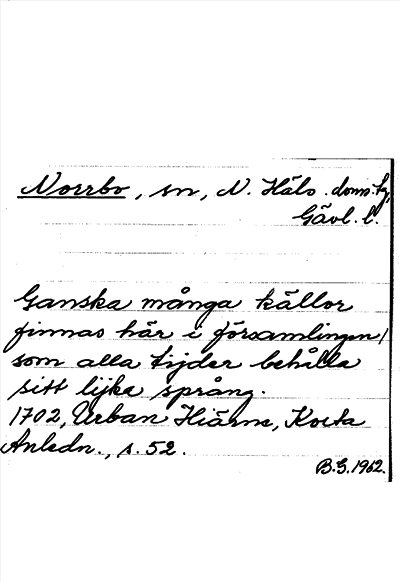 Norrbo, sn, N. Häls. doms.hg,
Gävl. l.
Ganska många källor
finnas här i församlingen/
som alla tijder behålla
sitt lijka språng.
1702, Urban Hiärne, Korta
Anledn., s. 52.
B.G. 1962.